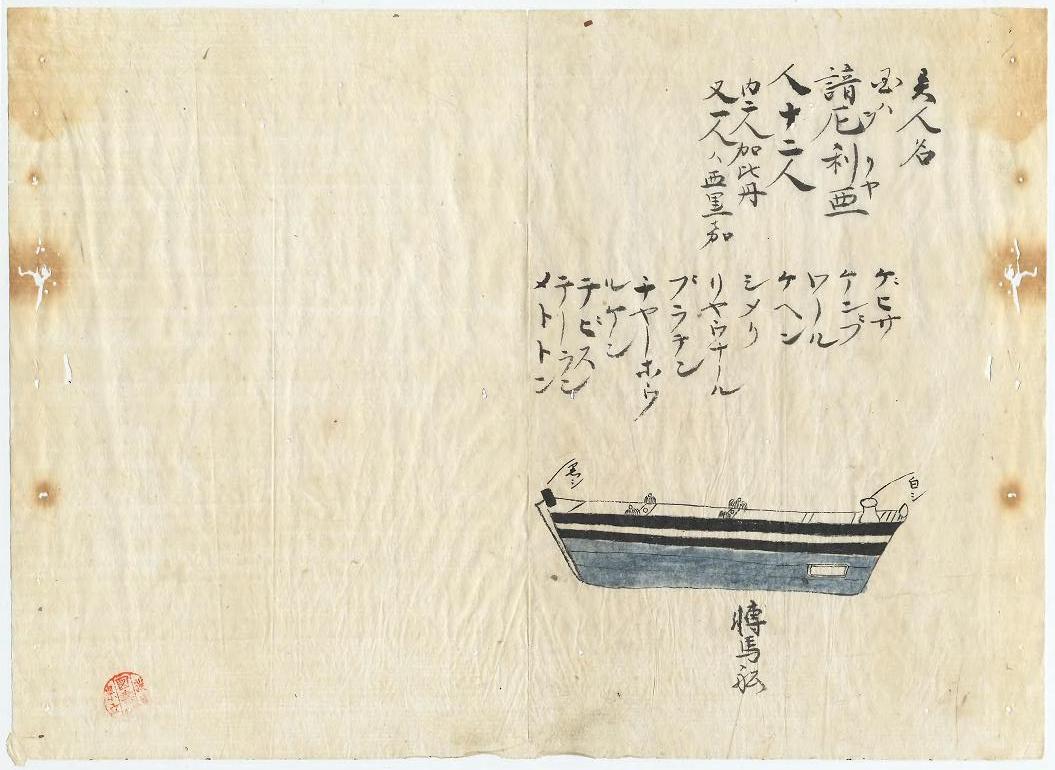 異人名
国ハ
諳厄利亜
ン リヤ
人十二人
内二人加比丹
又一人ハ亜墨加
ゲビサ
ケンブ
ワール
ケヘン
シメリ
リヤウナール
ブラチン
チヤーホウ
ルケン
テビスン
テーラン
メトトン
白シ
黒シ
傳馬船